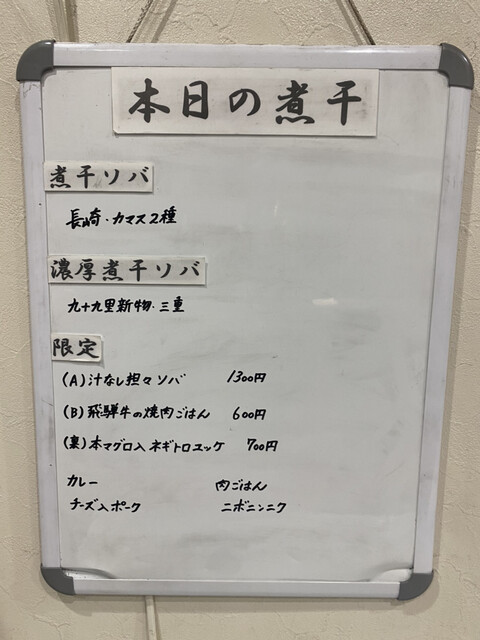 本日の煮干
煮干ソバ
長崎・カマス2種
濃厚煮干ソバ
九十九里新物・三重
限定
(A)汁なし担々ソバ 1300円
(B)飛騨牛の焼肉ごはん 600円
(裏)本マグロ入ネギトロユッケ 700円
カレー 肉ごはん
チーズ入ポーク ニボニンニク